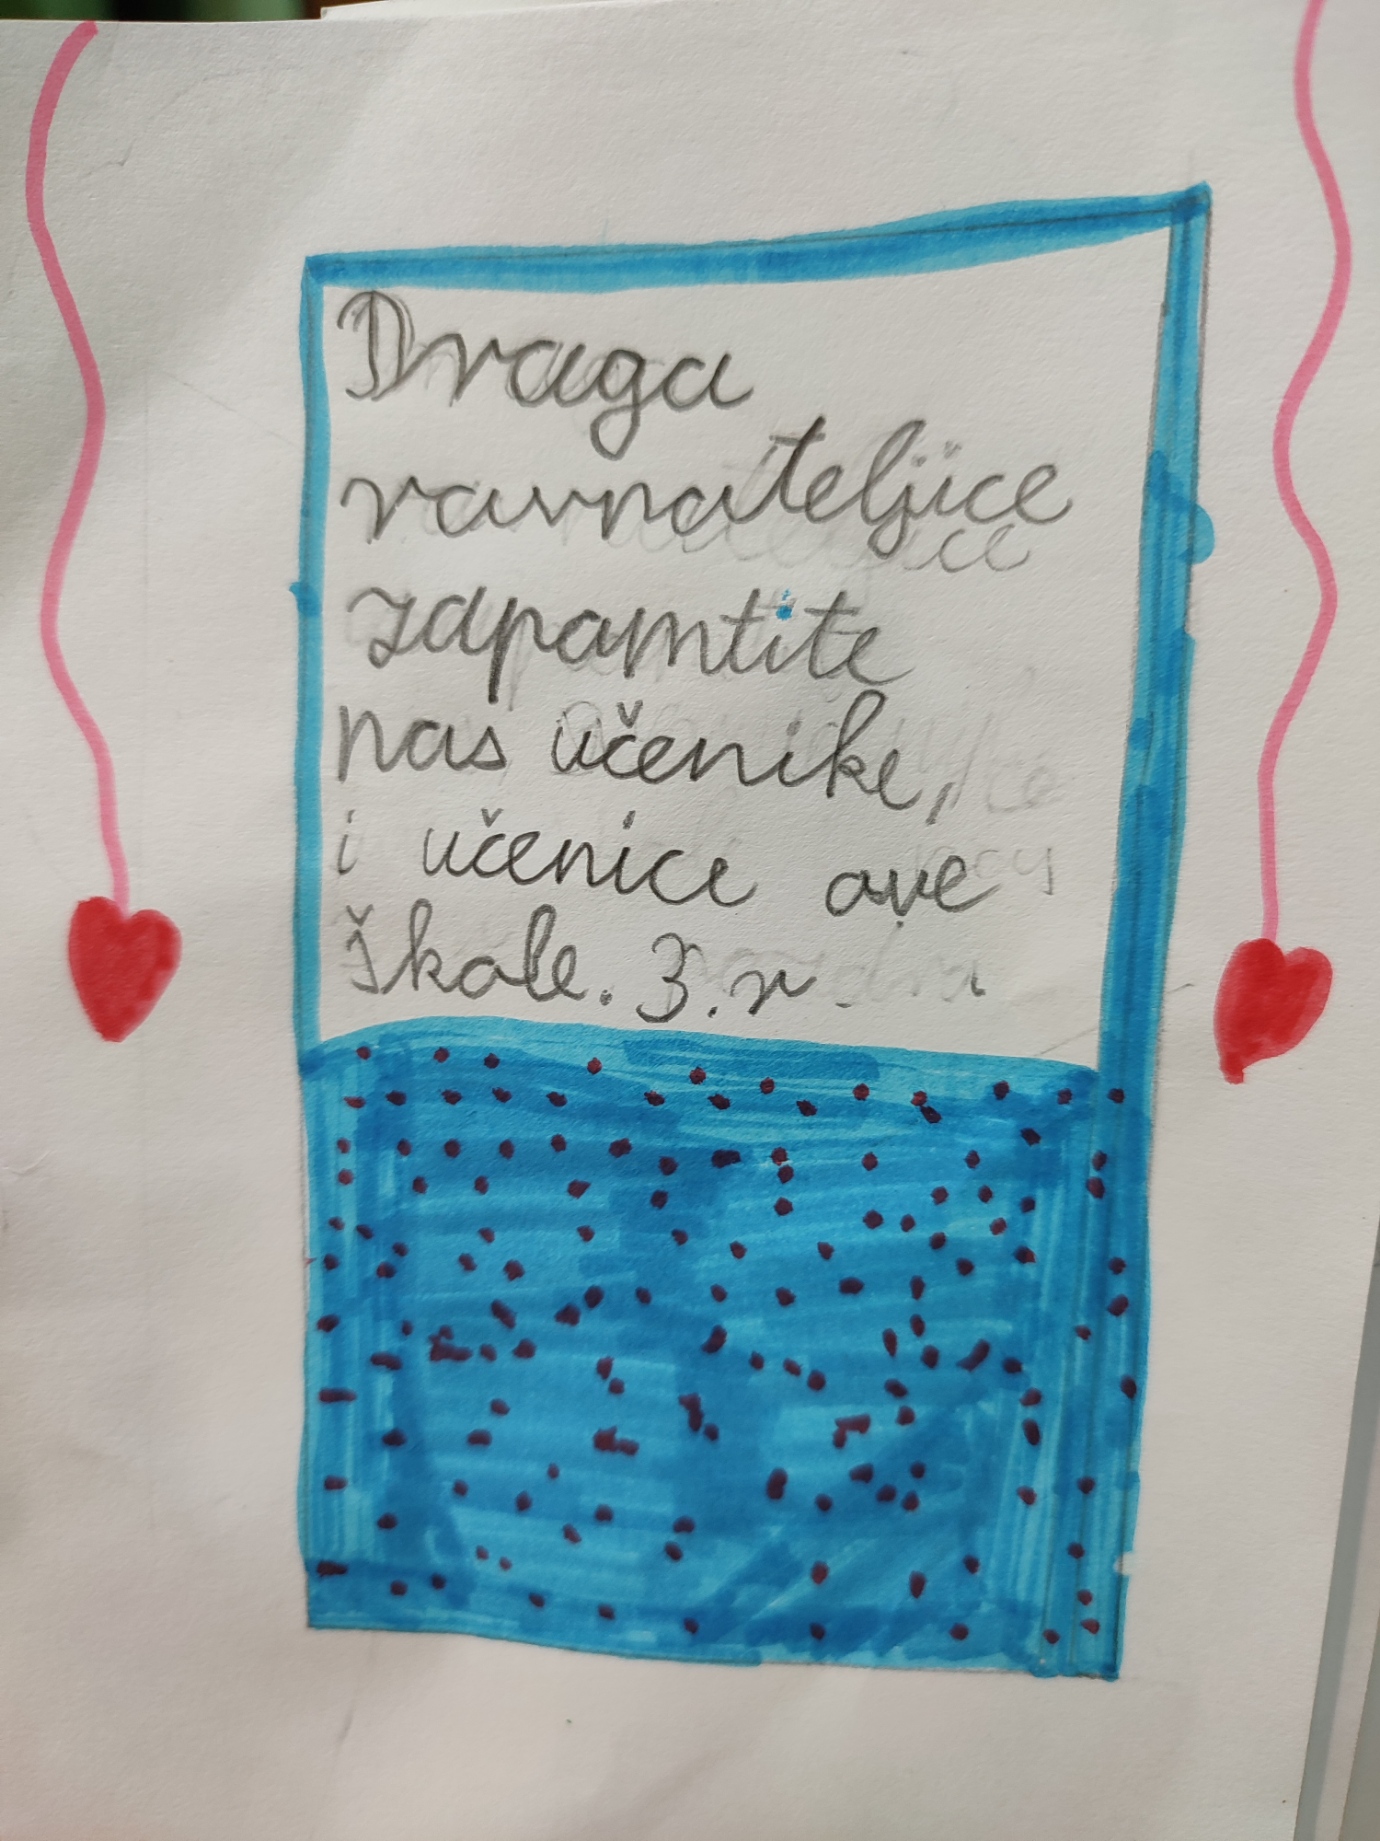 Draga
ravnateljice
zapamtite
nas učenike,
i učenice ove
škole. 3. r